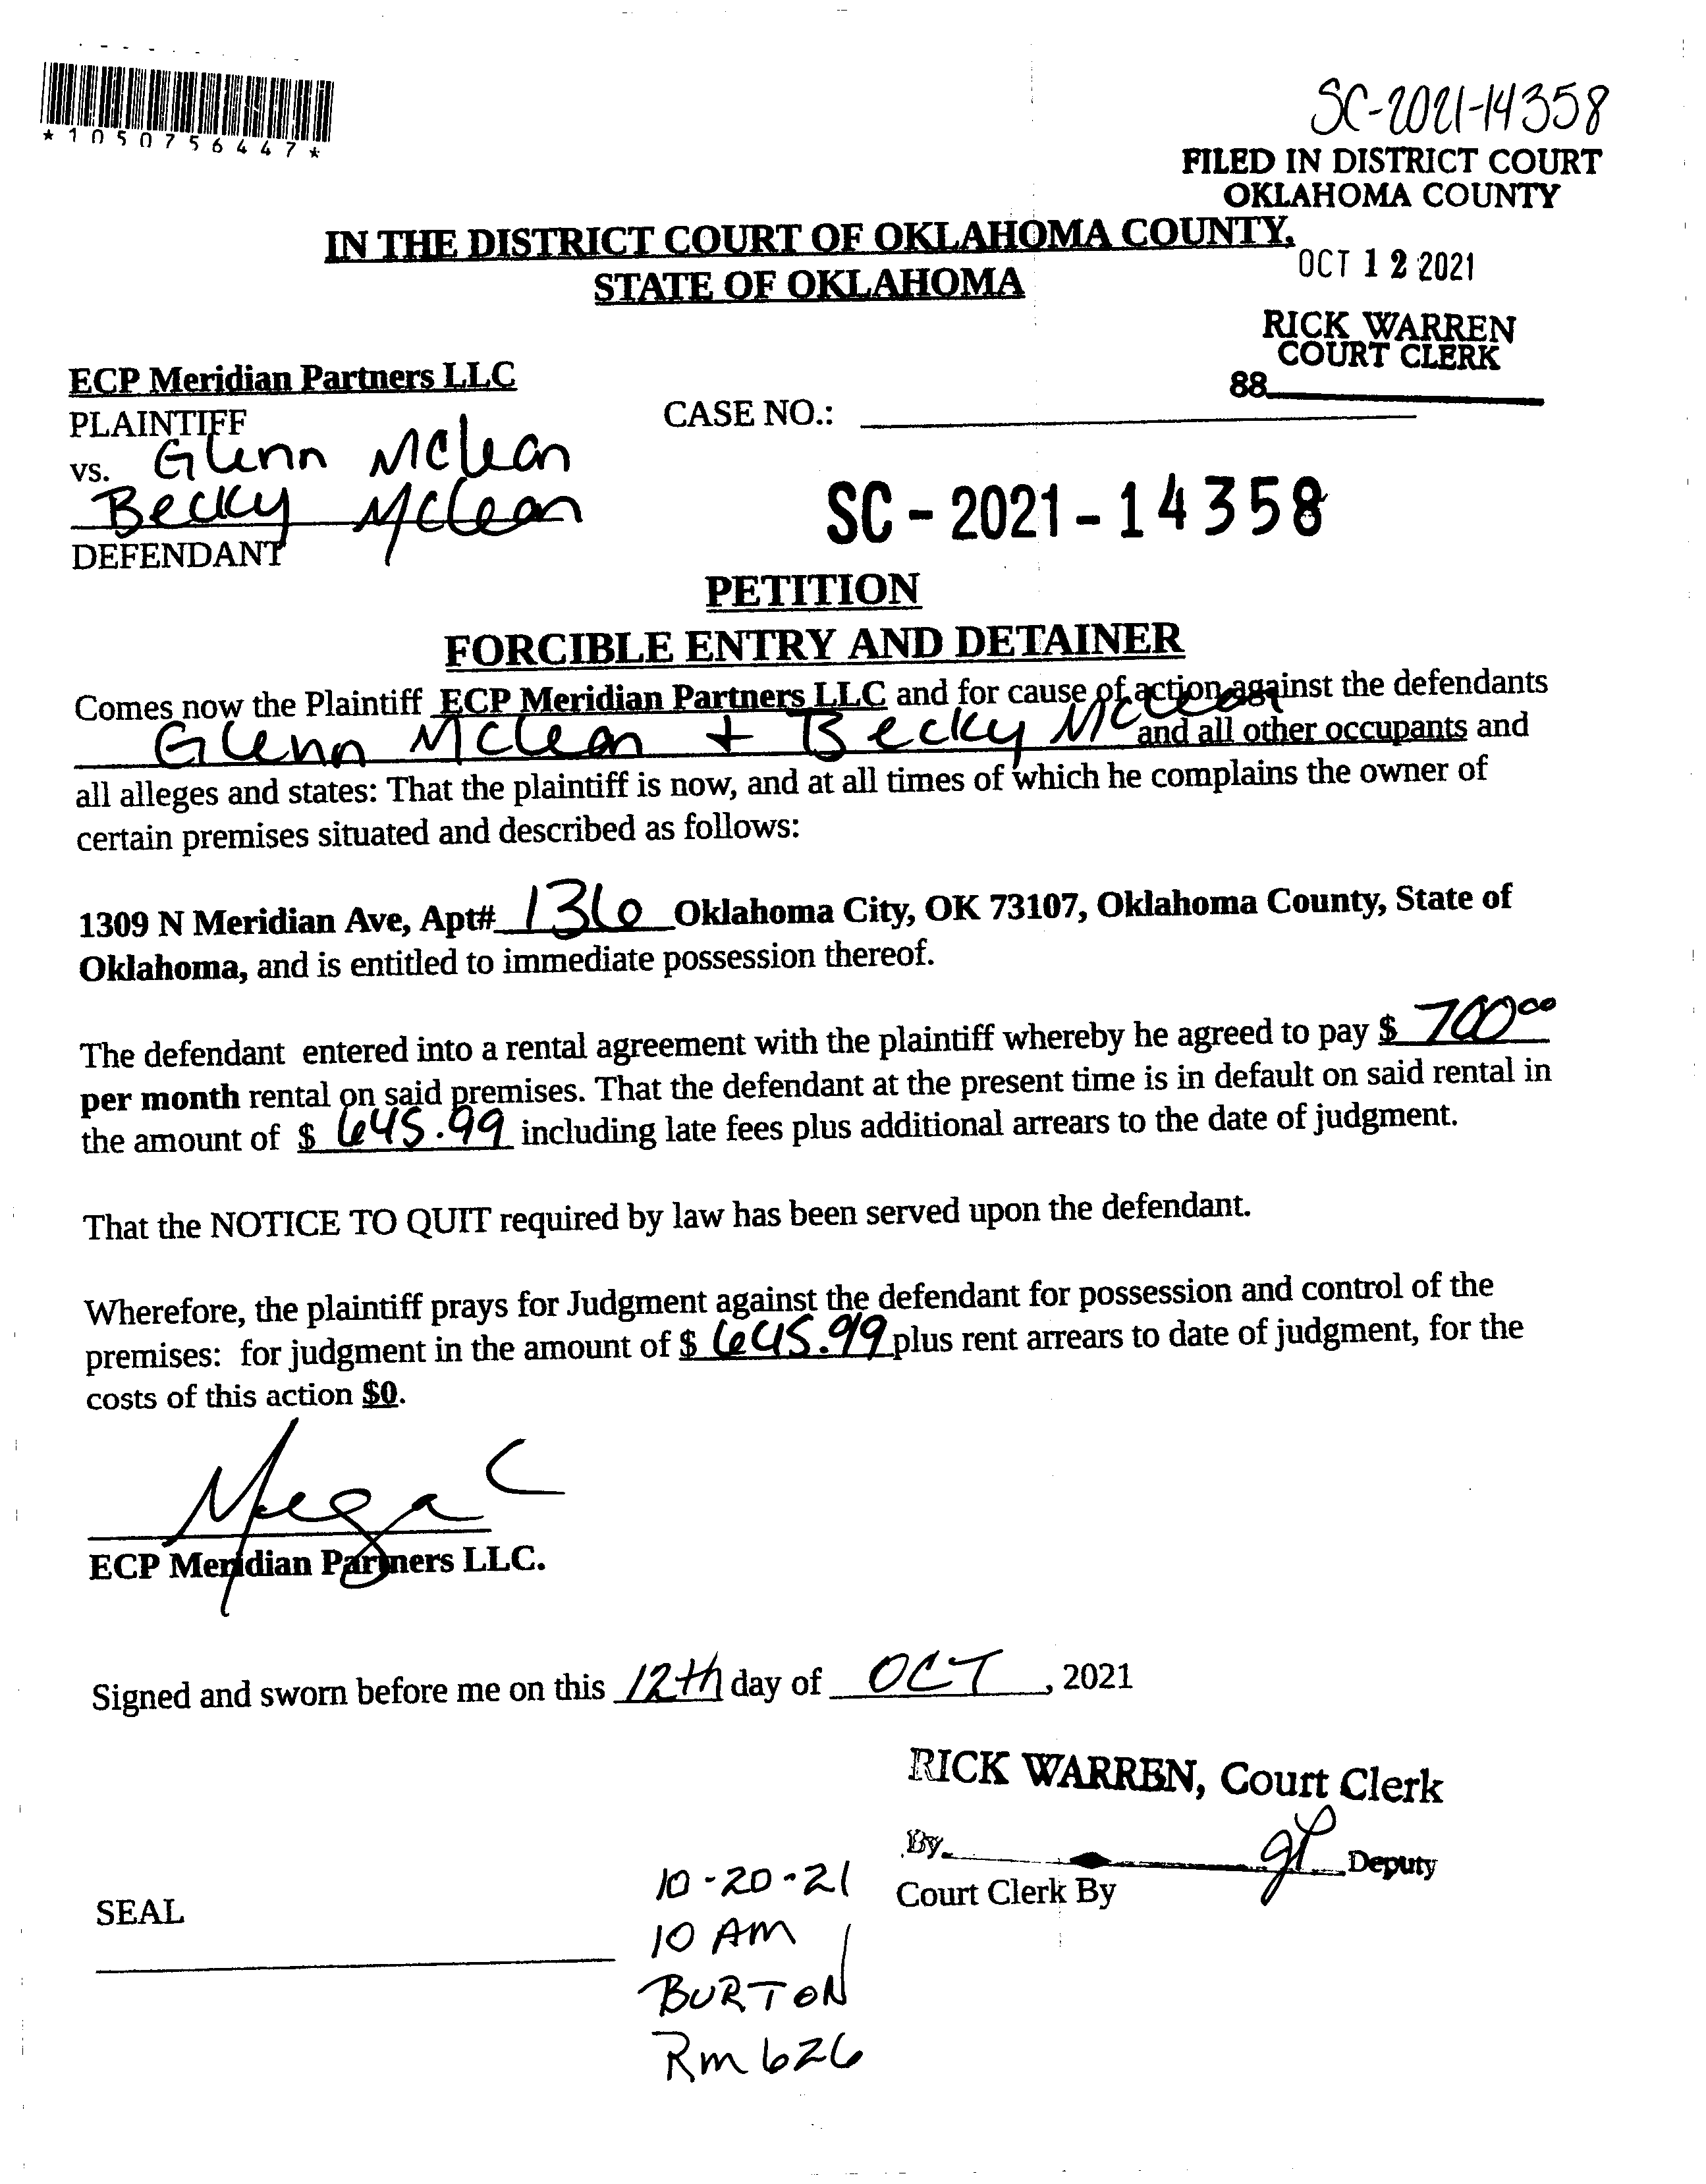 SC-2021-14358
*1050756447*
FILED IN DISTRICT COURT
OKLAHOMA COUNTY
IN THE DISTRICT COURT OF OKLAHOMA COUNTY,
STATE OF OKLAHOMA
OCT 12 2021
RICK WARREN
COURT CLERK
88
ECP Meridian Partners LLC
PLAINTIFF
CASE NO.:
vs. Glenn McLean
Becky McLean
DEFENDANT
SC - 2021 - 14358
PETITION
FORCIBLE ENTRY AND DETAINER
Comes now the Plaintiff ECP Meridian Partners LLC and for cause of action against the defendants
Glenn McLean + Becky McLean and all other occupants and
all alleges and states: That the plaintiff is now, and at all times of which he complains the owner of
certain premises situated and described as follows:
1309 N Meridian Ave, Apt# 136 Oklahoma City, OK 73107, Oklahoma County, State of
Oklahoma, and is entitled to immediate possession thereof.
The defendant entered into a rental agreement with the plaintiff whereby he agreed to pay $ 700.00
per month rental on said premises. That the defendant at the present time is in default on said rental in
the amount of $ 645.99 including late fees plus additional arrears to the date of judgment.
That the NOTICE TO QUIT required by law has been served upon the defendant.
Wherefore, the plaintiff prays for Judgment against the defendant for possession and control of the
premises: for judgment in the amount of $ 645.99 plus rent arrears to date of judgment, for the
costs of this action $0.
ECP Meridian Partners LLC.
Signed and sworn before me on this 12th day of OCT, 2021
RICK WARREN, Court Clerk
By Deputy
Court Clerk By
SEAL
10-20-21
10 AM
BURTON
Rm 626